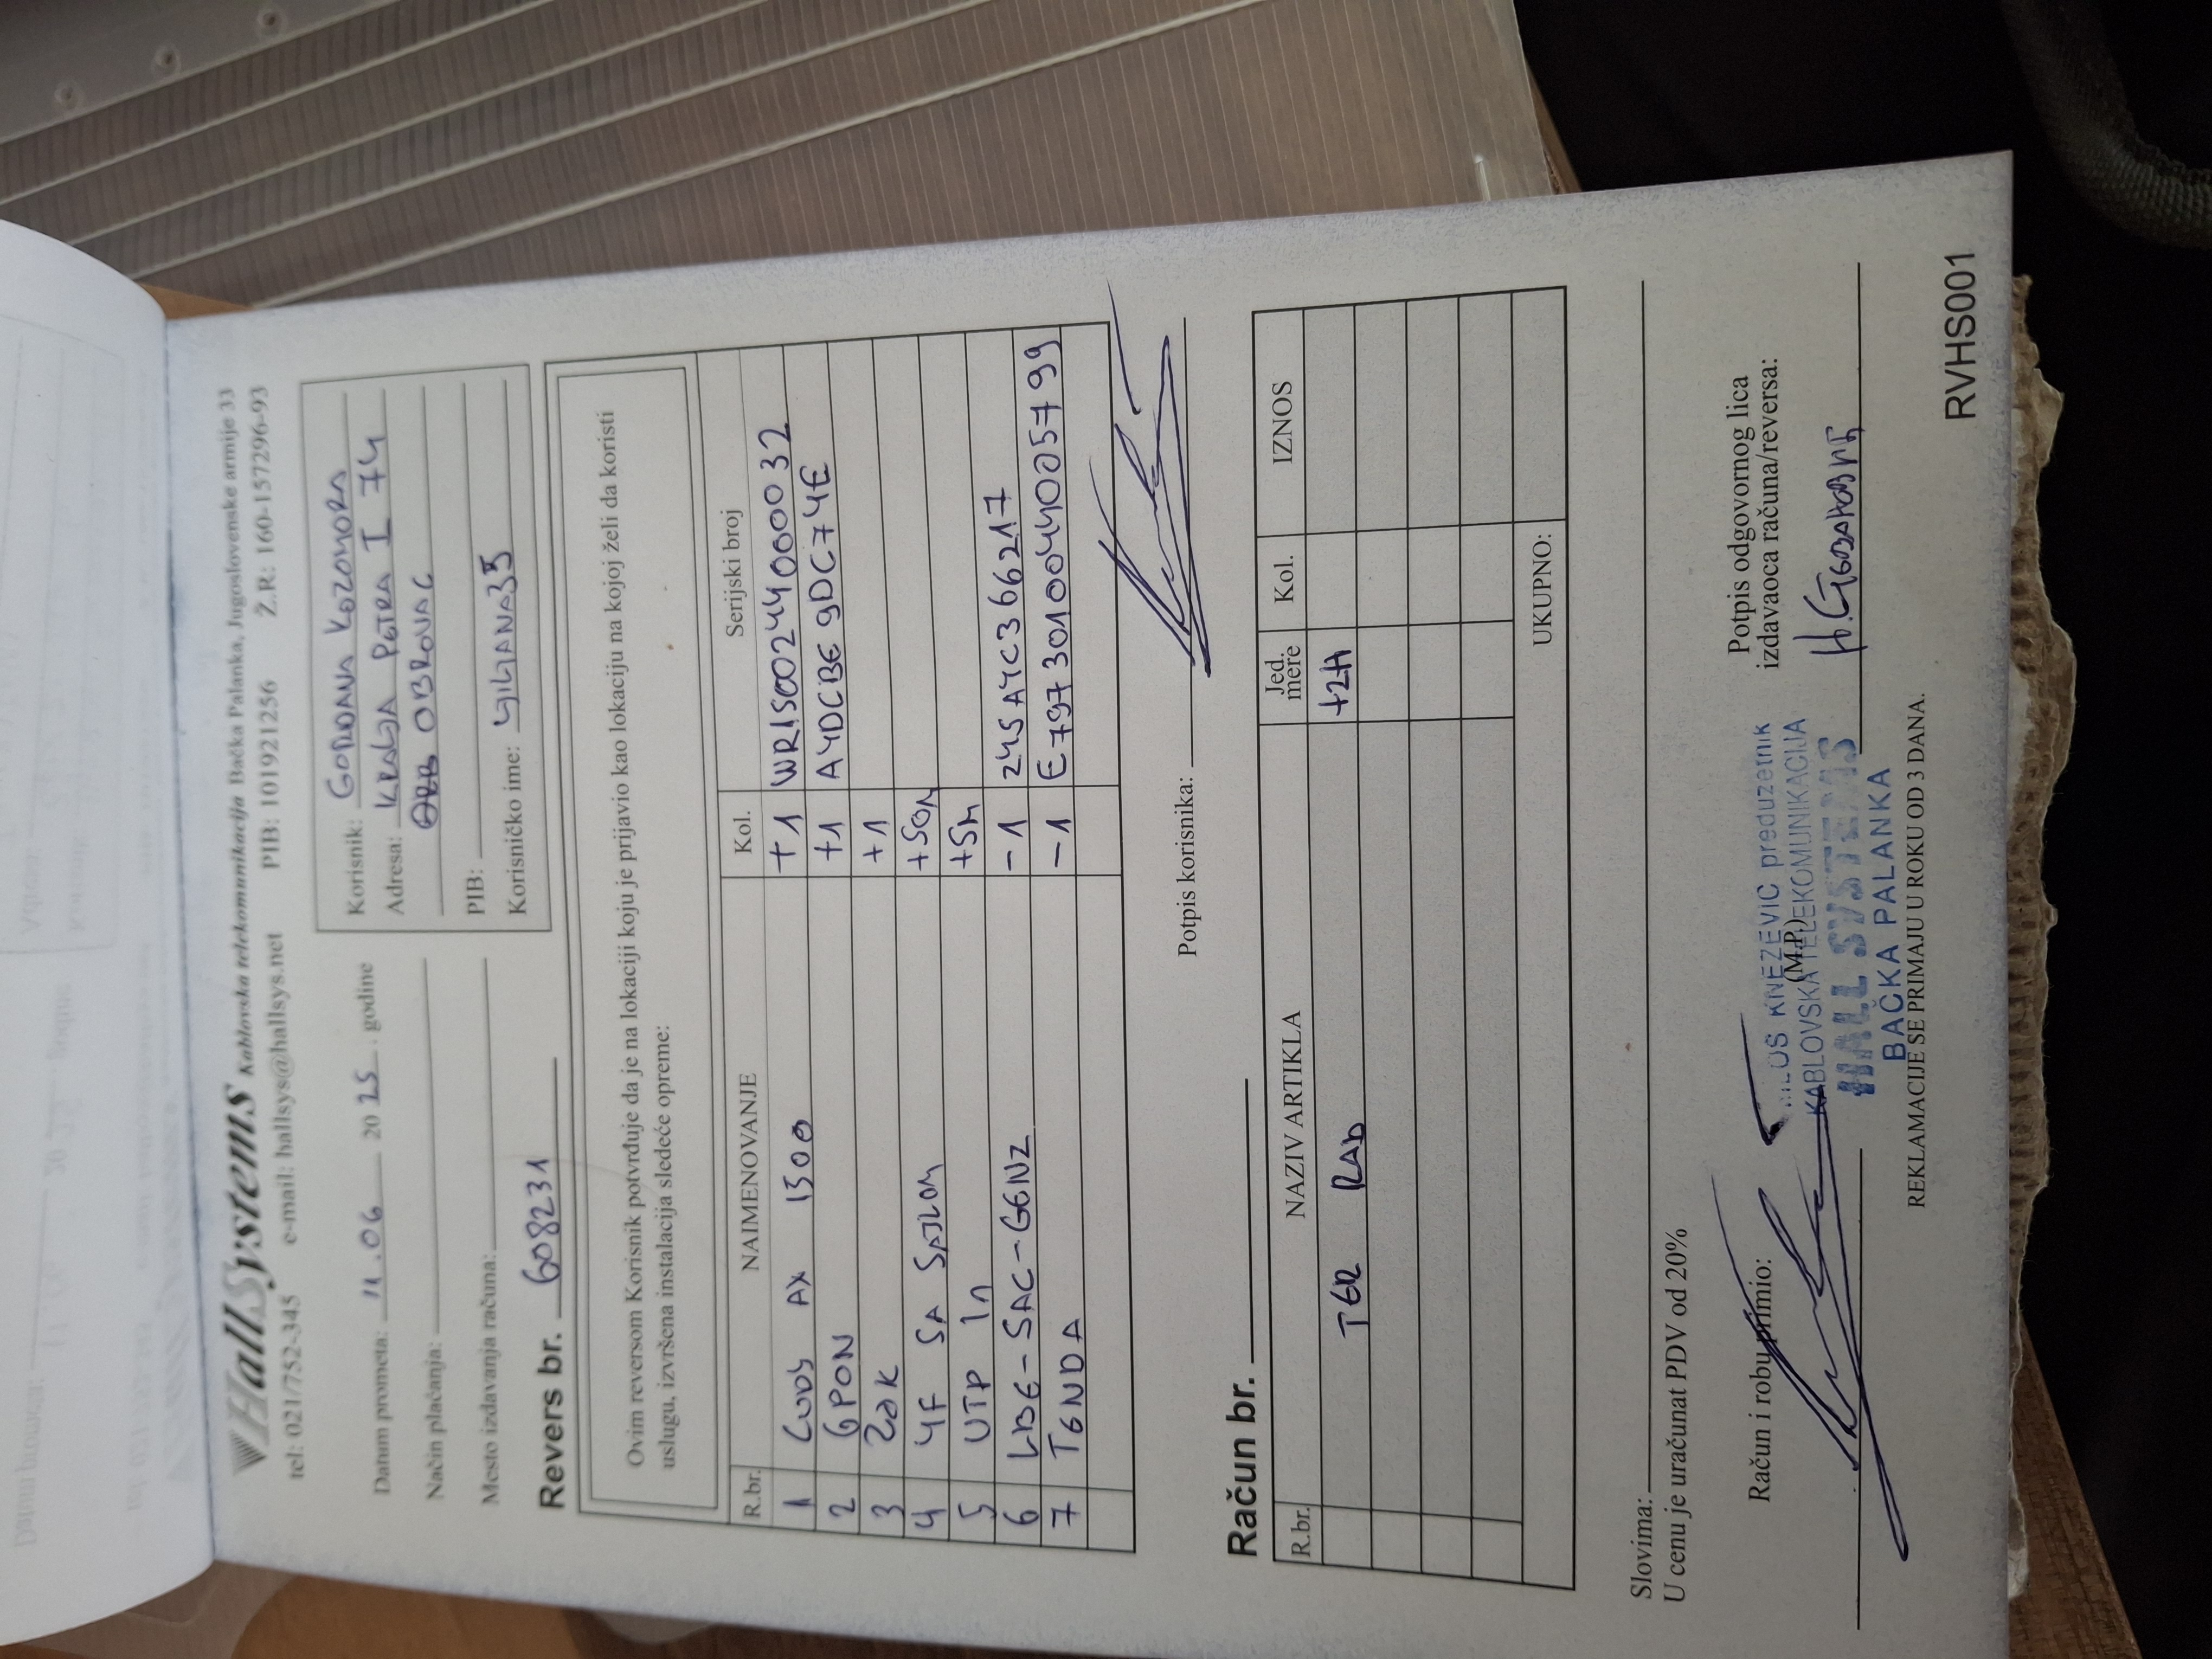 HallSystems Kablovska telekomunikacija Bačka Palanka, Jugoslovenske armije 33
tel: 021/752-345 e-mail: hallsys@hallsys.net PIB: 101921256 Ž.R: 160-1572296-93
Datum prometa: 11.06 2025. godine
Način plaćanja:
Mesto izdavanja računa:
Korisnik: GORDANA KOZOMORA
Adresa: KRALJA PETRA I 74
OBROVAC
PIB:
Korisničko ime:
Revers br. 608231
Ovim reversom Korisnik potvrđuje da je na lokaciji koju je prijavio kao lokaciju na kojoj želi da koristi
uslugu, izvršena instalacija sledeće opreme:
R.br. NAIMENOVANJE Kol. Serijski broj
1 CUDY AX 1500 +1 WR1500244000032
2 GPON +1 A4DCBE9DC74E
3 ZOK +1
4 4F SA SAJLOM +50m
5 UTP +5m
6 LBE-5AC-GEN2 -1 245A4C366217
7 TENDA -1 E7973010044005799
Potpis korisnika:
Račun br.
R.br. NAZIV ARTIKLA Jed. mere Kol. IZNOS
TER RAD +2H
UKUPNO:
Slovima:
U cenu je uračunat PDV od 20%
Račun i robu primio:
(M.P.)
MILOŠ KNEŽEVIĆ preduzetnik
KABLOVSKA TELEKOMUNIKACIJA
HALL SYSTEMS
BAČKA PALANKA
Potpis odgovornog lica
izdavaoca računa/reversa:
REKLAMACIJE SE PRIMAJU U ROKU OD 3 DANA.
RVHS001